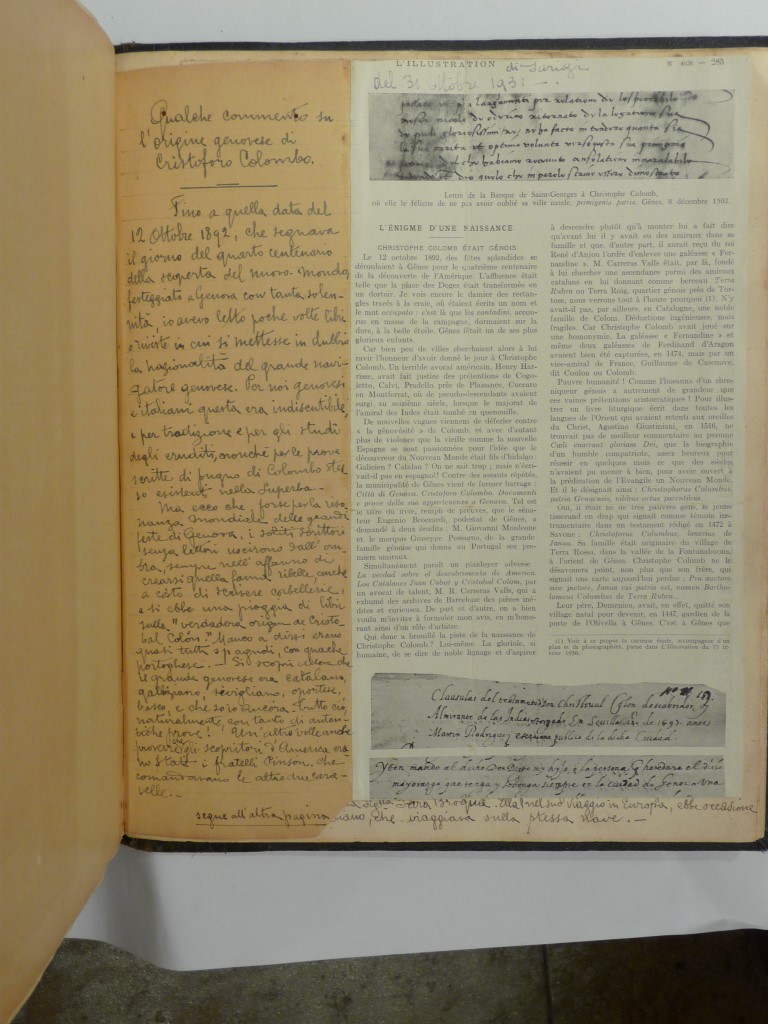 Qualche commento su
l'origine genovese di
Cristoforo Colombo.
Fino a quella data del
12 Ottobre 1892, che segnava
il giorno del quarto centenario
della scoperta del nuovo mondo,
festeggiato a Genova con tanta solen-
nità, io avevo letto poche volte libri
e riviste in cui si mettesse in dubbio
la nazionalità del grande navi-
gatore genovese. Per noi genovesi
e italiani questa era indiscutibile,
e per tradizione e per gli studi
degli eruditi, nonchè per le prove
scritte di pugno di Colombo stes-
so esistenti nella Superba.—
Ma ecco che, forse per la riso-
nanza mondiale delle grandi
feste di Genova, i soliti scrittori
senza lettori uscirono dall'om-
bra, sempre nell'affanno di
crearsi quella fama ribelle, anche
a costo di scrivere corbellerie,
e si ebbe una pioggia di libri
sulla "verdadera origen de Cristo-
bal Colón." Manco a dirsi erano
quasi tutti spagnoli, con qualche
portoghese. — Si scoprì che
le grande genovese era catalano,
galliziano, sivigliano,
basco, e che so io ancora. Tutto ciò,
naturalmente, con tanto di auten-
tiche prove!
scopritori d'America era-
no stati i fratelli Pinson, che
comandavano le altre due cara-
velle.—
segue all'altra pagina
viaggio in Europa, ebbe occasione
che viaggiava sulla stessa nave.—
L'ILLUSTRATION di Parigi
N° — 285
del 31 Ottobre 1931
Lettre de la Banque de Saint-Georges à Christophe Colomb,
où elle le félicite de ne pas avoir oublié sa ville natale, primigenia patria. Gênes, 8 décembre 1502.
L'ÉNIGME D'UNE NAISSANCE
CHRISTOPHE COLOMB ÉTAIT GÉNOIS
Le 12 octobre 1892, des fêtes splendides se
déroulaient à Gênes pour le quatrième centenaire
de la découverte de l'Amérique. L'affluence était
telle que la place des Doges était transformée en
un dortoir. Je vois encore le damier des rectan-
gles tracés à la craie, où étaient écrits un nom et
le mot occupato : c'est là que les contadini, accou-
rus en masse de la campagne, dormaient sur la
dure, à la belle étoile. Gênes fêtait un de ses plus
glorieux enfants.
Car bien peu de villes cherchaient alors à lui
ravir l'honneur d'avoir donné le jour à Christophe
Colomb. Un terrible avocat américain, Henry Har-
risse, avait fait justice des prétentions de Cogo-
letto, Calvi, Pradello près de Plaisance, Cuccaro
en Montferrat, où de pseudo-descendants avaient
surgi au seizième siècle, lorsque le majorat de
l'amiral des Indes était tombé en quenouille.
De nouvelles vagues viennent de déferler contre
« la génovésité » de Colomb, et avec d'autant
plus de violence que la vieille comme la nouvelle
Espagne se sont passionnées pour l'idée que le
découvreur du Nouveau Monde était fils d'hidalgo.
Galicien ? Catalan ? On ne sait trop ; mais n'écri-
vait-il pas en espagnol! Contre des assauts répétés,
la municipalité de Gênes vient de former barrage :
Città di Genova. Cristoforo Colombo. Documenti
e prove della sua appartenenza a Genova. Tel est
le titre du livre, rempli de preuves, que le séna-
teur Eugenio Broccardi, podestat de Gênes, a
demandé à deux érudits : M. Giovanni Monleone
et le marquis Giuseppe Pessagno, de la grande
famille génoise qui donna au Portugal ses pre-
miers amiraux.
Simultanément paraît un plaidoyer adverse :
La verdad sobre el descubrimiento de America.
Los Catalanes Juan Cabot y Cristobal Colom, par
un avocat de talent, M. R. Carreras Valls, qui a
exhumé des archives de Barcelone des pièces iné-
dites et curieuses. De part et d'autre, on a bien
voulu m'inviter à formuler mon avis, en m'hono-
rant ainsi d'un rôle d'arbitre.
Qui donc a brouillé la piste de la naissance de
Christophe Colomb ? Lui-même. La gloriole, si
humaine, de se dire de noble lignage et d'aspirer
à descendre plutôt qu'à monter lui a fait dire
qu'avant lui il y avait eu des amiraux dans sa
famille et que, d'autre part, il aurait reçu du roi
René d'Anjou l'ordre d'enlever une galéasse « Fer-
nandine ». M. Carreras Valls était, par là, fondé
à lui chercher une ascendance parmi des amiraux
catalans en lui donnant comme berceau Terra
Rubra ou Terra Roig, quartier génois près de Tor-
tose, nous verrons tout à l'heure pourquoi (1). N'y
avait-il pas, par ailleurs, en Catalogne, une noble
famille de Colom. Déductions ingénieuses, mais
fragiles. Car Christophe Colomb avait joué sur
une homonymie. La galéasse « Fernandine » et
même deux galéasses de Ferdinand d'Aragon
avaient bien été capturées, en 1474, mais par un
vice-amiral de France, Guillaume de Casenove,
dit Coulon ou Colomb.
Pauvre humanité ! Comme l'hosanna d'un chro-
niqueur génois a autrement de grandeur que
ces vaines prétentions aristocratiques ! Pour illus-
trer un livre liturgique écrit dans toutes les
langues de l'Orient qui avaient retenti aux oreilles
du Christ, Agostino Giustiniani, en 1516, ne
trouvait pas de meilleur commentaire au psaume
Cæli enarrant gloriam Dei, que la biographie
d'un humble compatriote, assez heureux pour
réussir en quelques mois ce que des siècles
n'avaient pu mener à bien, pour avoir ouvert à
la prédication de l'Evangile un Nouveau Monde.
Et il le désignait ainsi : Christophorus Columbus,
patria Genuensis, vilibus ortus parentibus.
Oui, il était né de très pauvres gens, le jeune
passementier qui signait comme témoin ins-
trumentaire dans un testament rédigé en 1472 à
Savone : Christoforus Columbus, lanerius de
Janua. Sa famille était originaire du village de
Terra Rossa, dans la vallée de la Fontanabuona,
à l'orient de Gênes. Christophe Colomb ne le
désavouera point, non plus que son frère, qui
signant une carte aujourd'hui perdue :
Leur père, Domenico, avait, en effet, quitté son
village natal pour devenir, en 1447, gardien de la
porte de l'Olivella à Gênes. C'est à Gênes que
(1) Voir à ce propos la curieuse étude, accompagnée d'un
plan et de photographies, parue dans L'Illustration du
Clausulas del testamento Don Christoval Colon descubridor, y
Almirante de las Indias
Martin Rodriguez escribano publico de la dicha Ciudad.
Yten mando al dicho Don Diego my hijo, o a la persona q heredare el dicho
mayorazgo, que tenga y sostenga siempre en la ciudad de Genova una